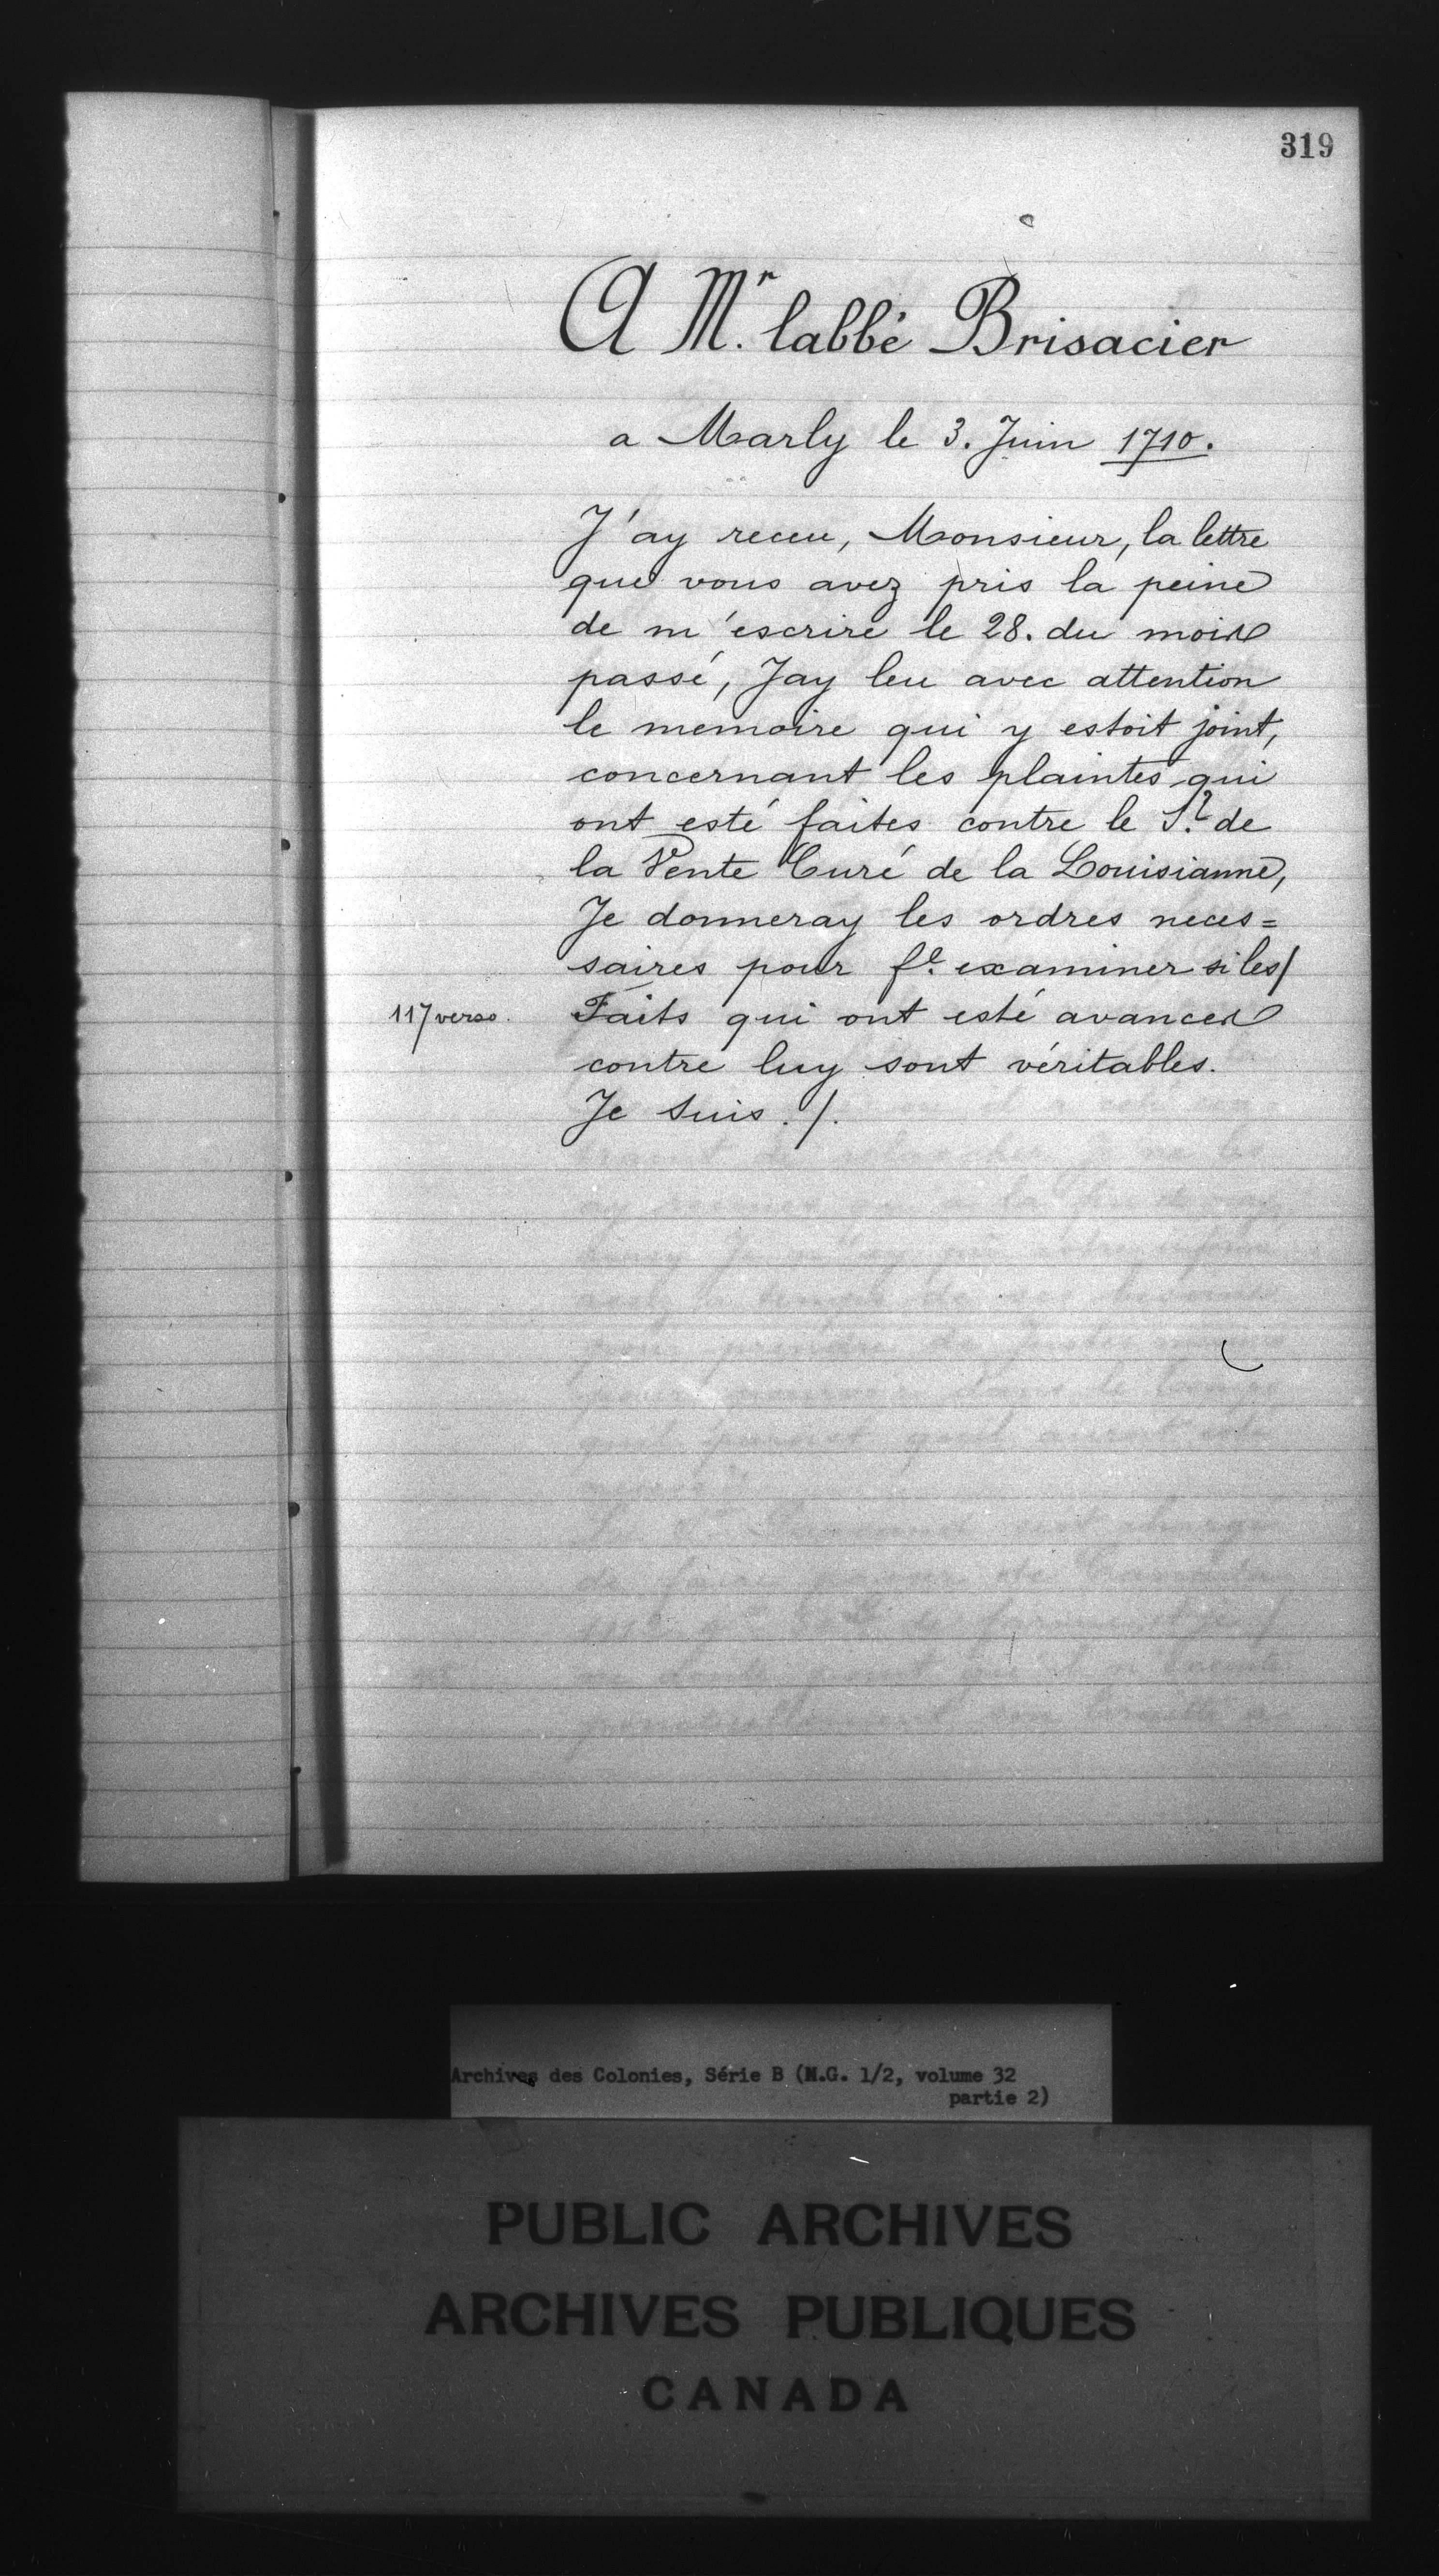 319
A Mr. labbé Brisacier
a Marly le 3. Juin 1710.
J'ay receu, Monsieur, la lettre
que vous avez pris la peine
de m'escrire le 28. du mois
passé, Jay leu avec attention
le memoire qui y estoit joint,
concernant les plaintes qui
ont esté faites contre le Sr. de
la Vente Curé de la Louisianne,
Je donneray les ordres neces=
saires pour fe. examiner si les/
117 verso. Faits qui ont esté avancez
contre luy sont véritables.
Je suis ./.
Archives des Colonies, Série B (M.G. 1/2, volume 32
partie 2)
PUBLIC ARCHIVES
ARCHIVES PUBLIQUES
CANADA